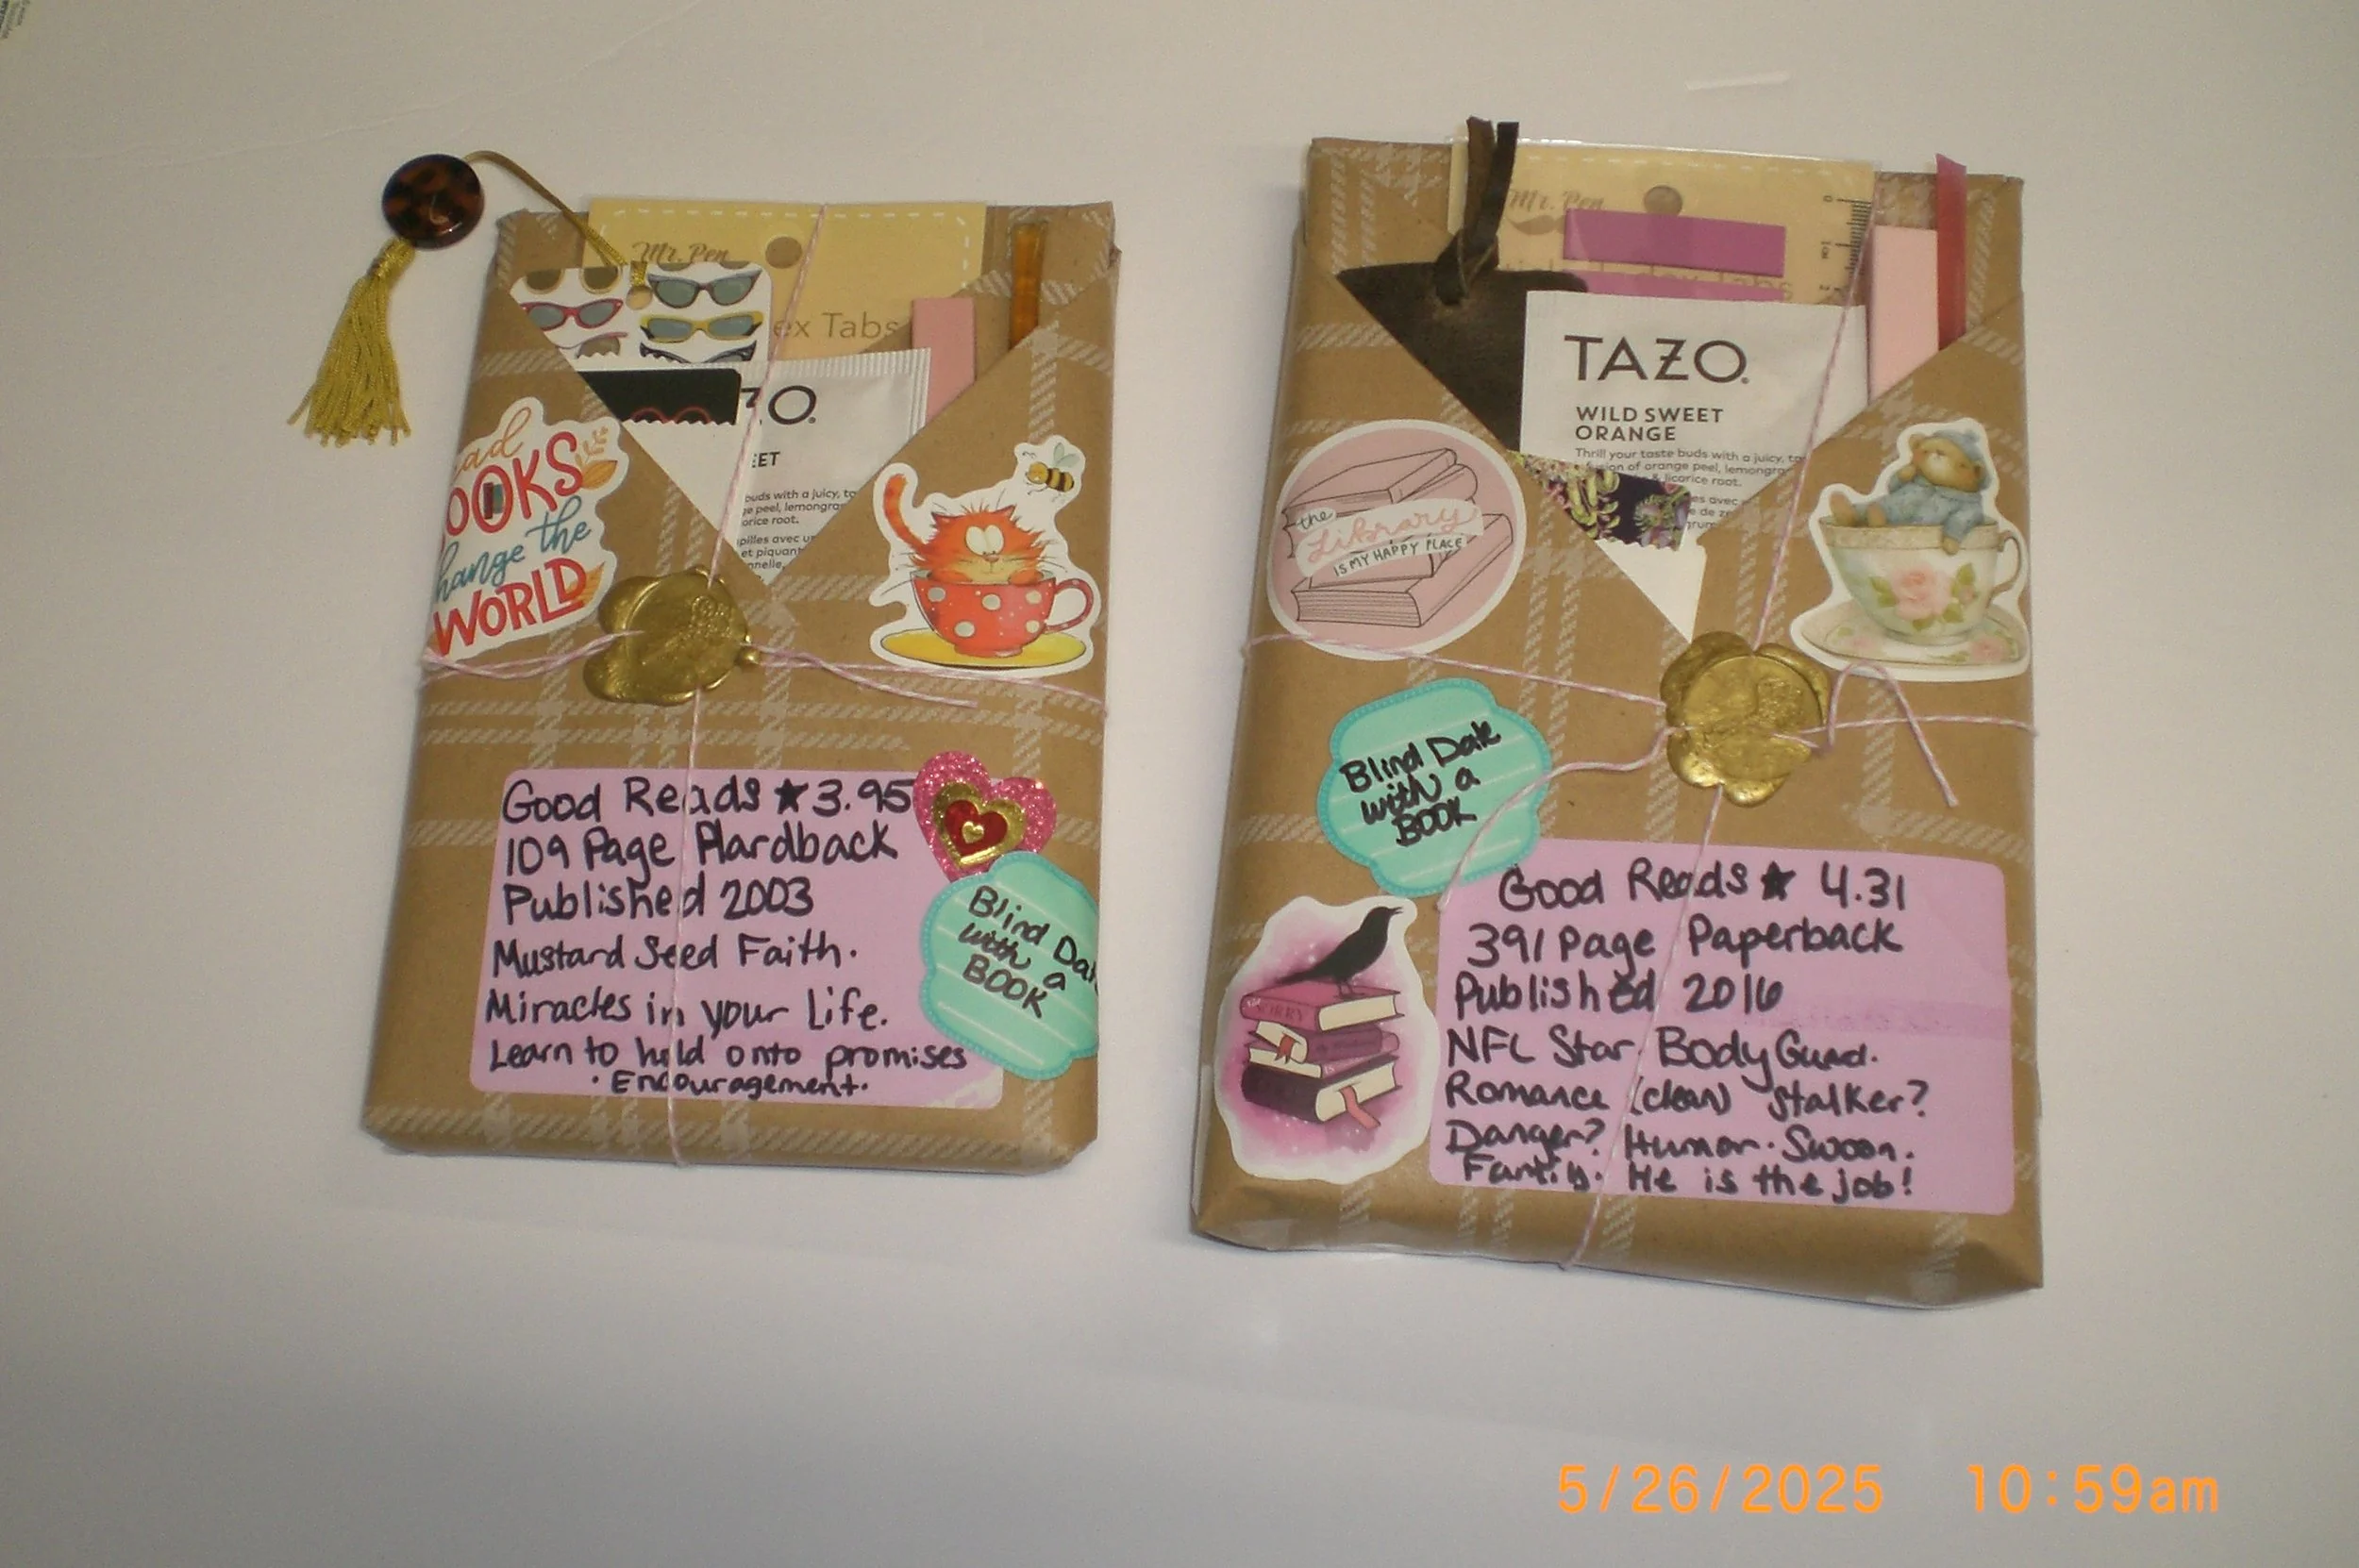 Mr. Pen
ex Tabs
ZO.
EET
buds with a juicy, ta
ge peel, lemongra
orice root.
pilles avec u
et piquant
nnelle,
ead
OOKS
hange the
WORLD
Good Reads ★ 3.95
109 Page Hardback
Published 2003
Mustard Seed Faith.
Miracles in your life.
Learn to hold onto promises
· Encouragement.
Blind Dat
with a
BOOK
Mr. Pen
TAZO.
WILD SWEET
ORANGE
Thrill your taste buds with a juicy, ta
sion of orange peel, lemongra
& licorice root.
es avec
e de ze
grum
the
Library
IS MY HAPPY PLACE
Blind Date
with a
BOOK
SORRY
Good Reads ★ 4.31
391 Page Paperback
Published 2016
NFL Star. Body Guard.
Romance (clean) Stalker?
Danger? Humor. Swoon.
Family. He is the job!
5/26/2025 10:59am